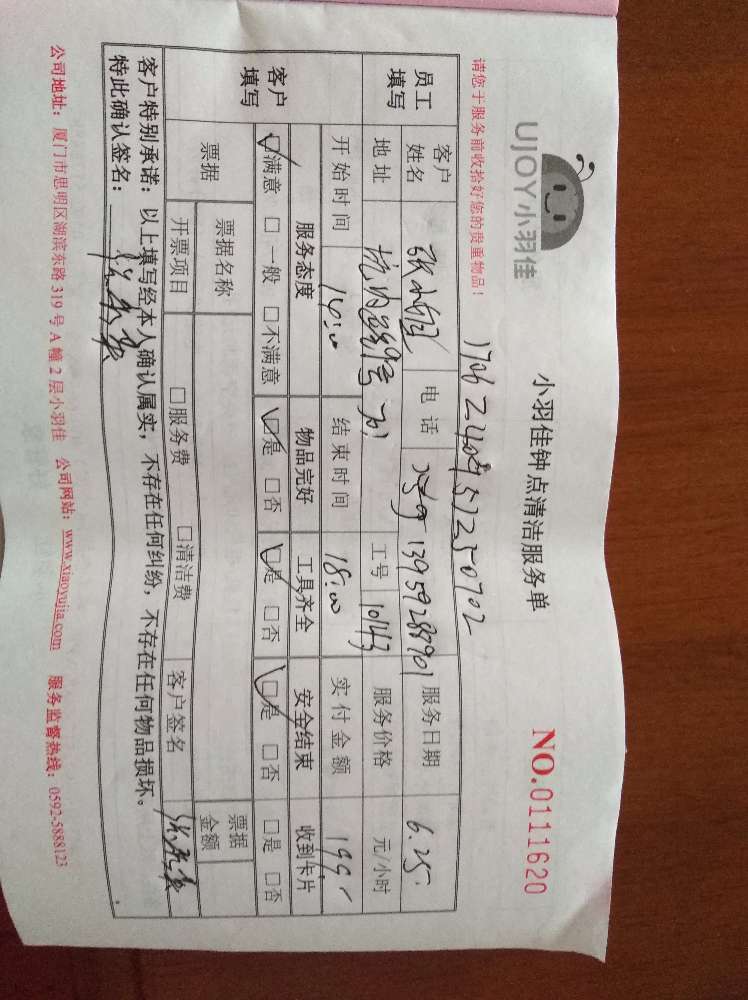 UJOY小羽佳
小羽佳钟点清洁服务单
NO.0111620
请您于服务前收拾好您的贵重物品！
员工填写
客户姓名
电话
13959288901
服务日期
6.25.
地址
701
工号
10143
服务价格
元/小时
开始时间
14:00
结束时间
18:00
实付金额
199
客户填写
服务态度
物品完好
工具齐全
安全结束
收到卡片
☑满意 □一般 □不满意
☑是 □否
☑是 □否
☑是 □否
□是 □否
票据
票据名称
票据金额
开票项目
□服务费 □清洁费
客户签名
客户特别承诺：以上填写经本人确认属实，不存在任何纠纷，不存在任何物品损坏。
特此确认签名：
公司地址：厦门市思明区湖滨东路319号A幢2层小羽佳 公司网站：www.xiaoyujia.com 服务监督热线：0592-5888123